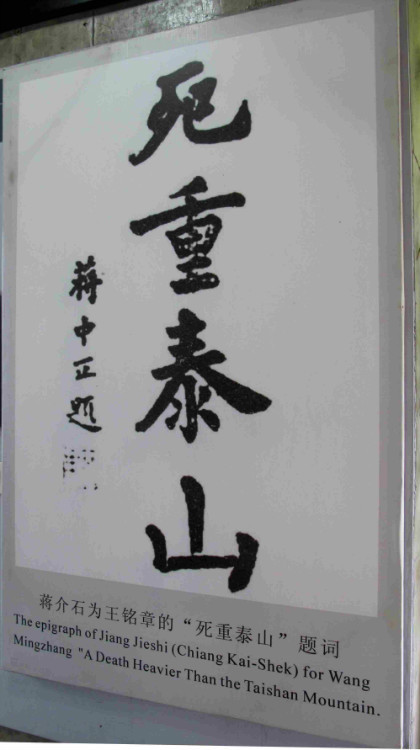 死重泰山
蒋中正题
蒋介石为王铭章的“死重泰山”题词
The epigraph of Jiang Jieshi (Chiang Kai-Shek) for Wang
Mingzhang "A Death Heavier Than the Taishan Mountain.